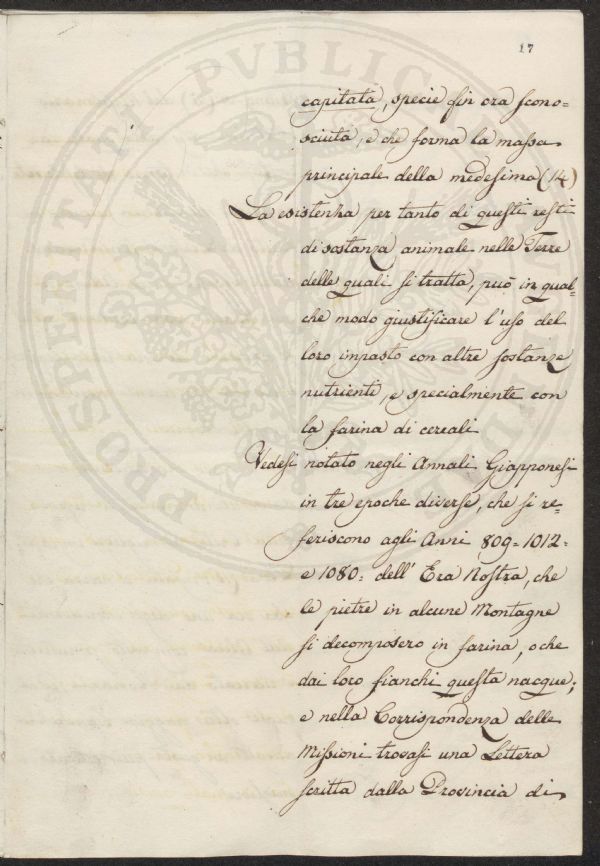 17
capitata, specie fin ora scono=
sciuta, e che forma la massa
principale della medesima (14)
La esistenha per tanto di questi resti
di sostanza animale nelle Terre
delle quali si tratta, può in qual=
che modo giustificare l'uso del
loro impasto con altre sostanze
nutrienti, e specialmente con
la farina di cereali
Vedesi notato negli Annali Giapponesi
in tre epoche diverse, che si re=
feriscono agli Anni 809=1012=
e 1080= dell' Era Nostra, che
le pietre in alcune Montagne
si decomposero in farina, o che
dai loro fianchi questa nacque;
e nella Corrispondenza delle
Missioni trovasi una Lettera
scritta dalla Provincia di
PROSPERITATI PUBLICAE